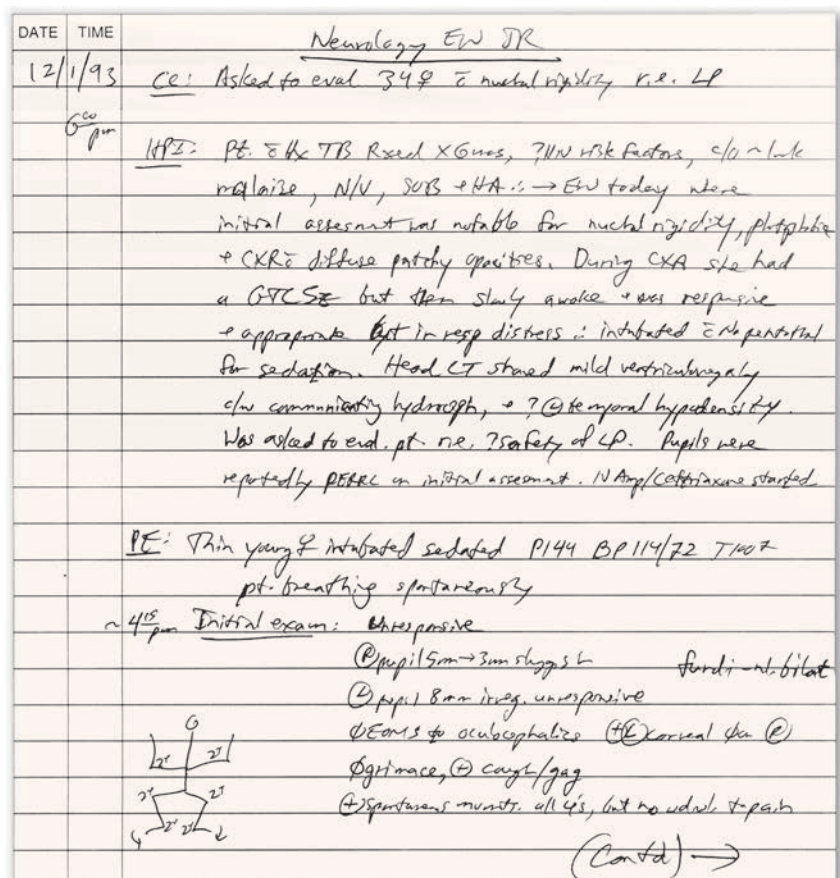 DATE TIME
Neurology EW JR
12/1/93 CC: Asked to eval 34♀ c̄ nuchal rigidity r.e. LP
6⁰⁰ pm
HPI: Pt. c̄ Hx TB Rxed X 6mos, ?HIV risk factors, c/o ~1wk
malaize, N/V, SOB + HA ∴ → EW today where
initial assesmnt was notable for nuchal rigidity, photophobia
+ CXR c̄ diffuse patchy opacities. During CXR she had
a GTCSz but then slowly awoke + was responsive
+ appropriate but in resp distress ∴ intubated c̄ Na pentothal
for sedation. Head CT showed mild ventriculomegaly
c/w communicating hydroceph, + ? Ⓛ temporal hypodensity.
Was asked to eval. pt. r.e. ?safety of LP. Pupils were
reportedly PERRL on initial assesment. IV Amp/Ceftriaxone started
PE: Thin young ♀ intubated sedated P144 BP 114/72 T100⁷
pt. breathing spontaneously
~ 4¹⁵ pm Initial exam: Unresponsive
Ⓡ pupil 5mm→3mm sluggish fundi-nl. bilat
Ⓛ pupil 8mm irreg. unresponsive
∅ EOMS to oculocephalics (+) Ⓛ corneal ∅ on Ⓡ
∅ grimace, (+) cough/gag
(+) Spontaneous mvmts. all 4's, but no wdrl. to pain
2+ 2+
2+ 2+
2+ 2+
↓ ↓
(Contd) →